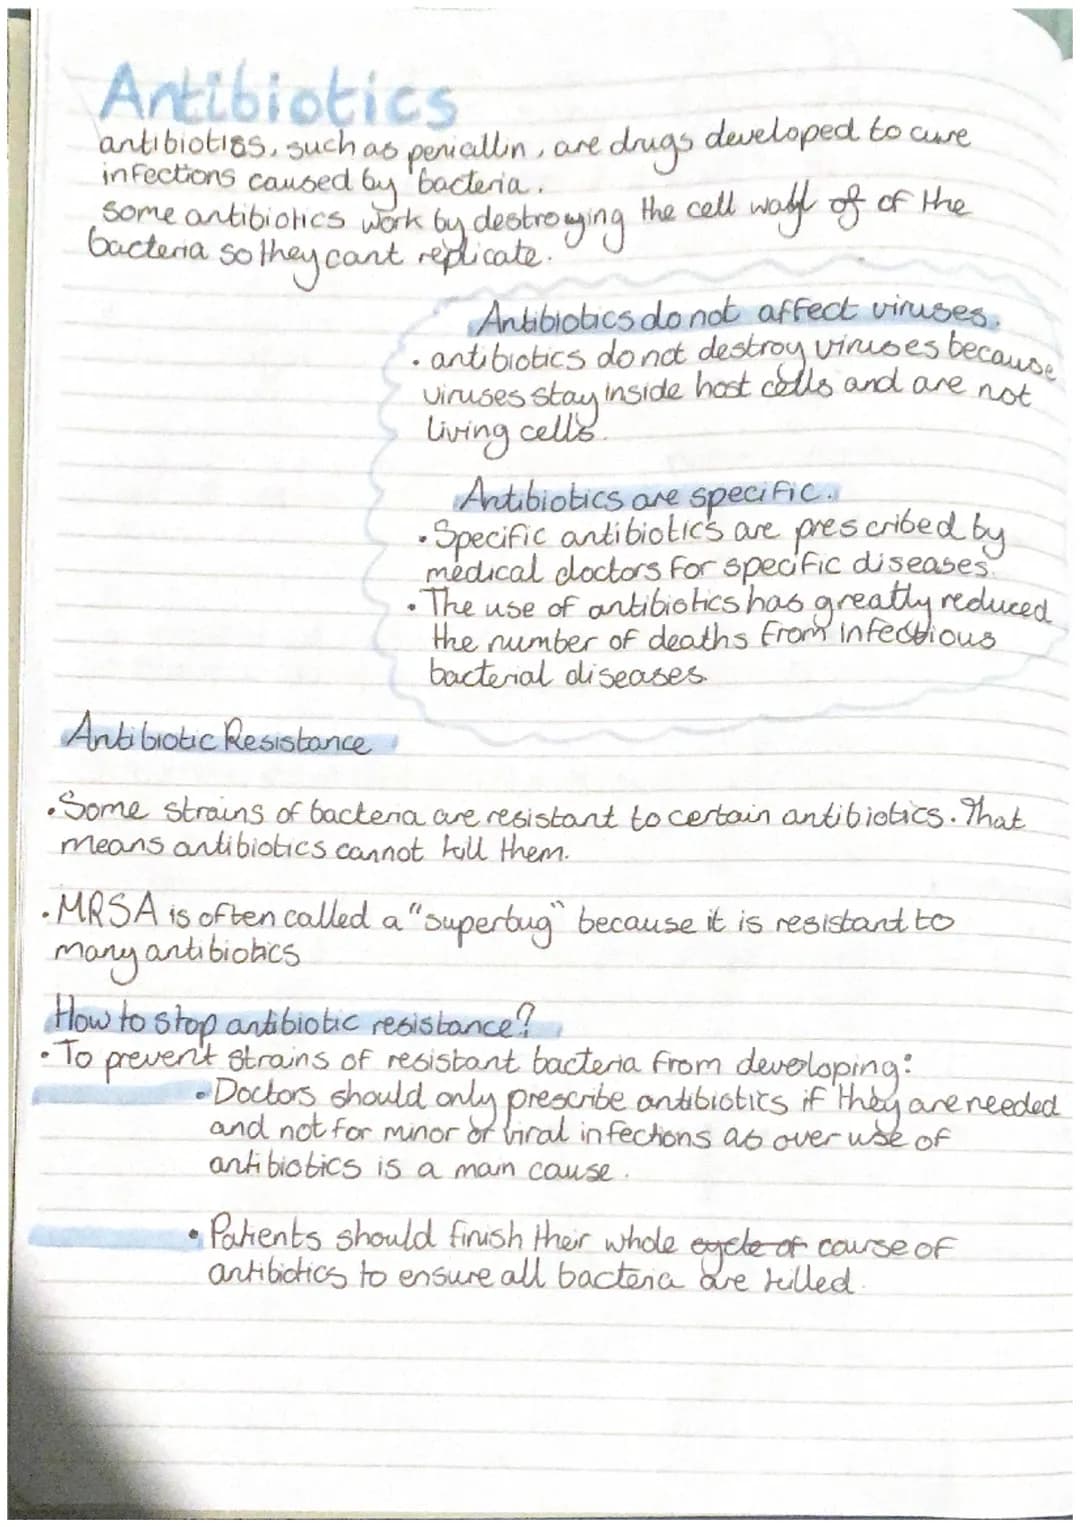 Antibiotics
antibiotiss, such as penicallin, are drugs developed to cure
infections caused by bacteria.
Some antibiotics work by destroying the cell wall of of the
bacteria so they cant replicate.
Antibiotics do not affect viruses.
• antibiotics do not destroy viruses because
viruses stay inside host cells and are not
living cells.
Antibiotics are specific.
• Specific antibiotics are prescribed by
medical doctors for specific diseases.
• The use of antibiotics has greatly reduced
the number of deaths from infectious
bacterial diseases.
Antibiotic Resistance
• Some strains of bacteria are resistant to certain antibiotics. That
means antibiotics cannot kill them.
• MRSA is often called a "superbug" because it is resistant to
many antibiotics
How to stop antibiotic resistance?
• To prevent strains of resistant bacteria from developing:
• Doctors should only prescribe antibiotics if they are needed
and not for minor or viral infections as over use of
antibiotics is a main cause.
• Patients should finish their whole cycle of course of
antibiotics to ensure all bacteria are killed.